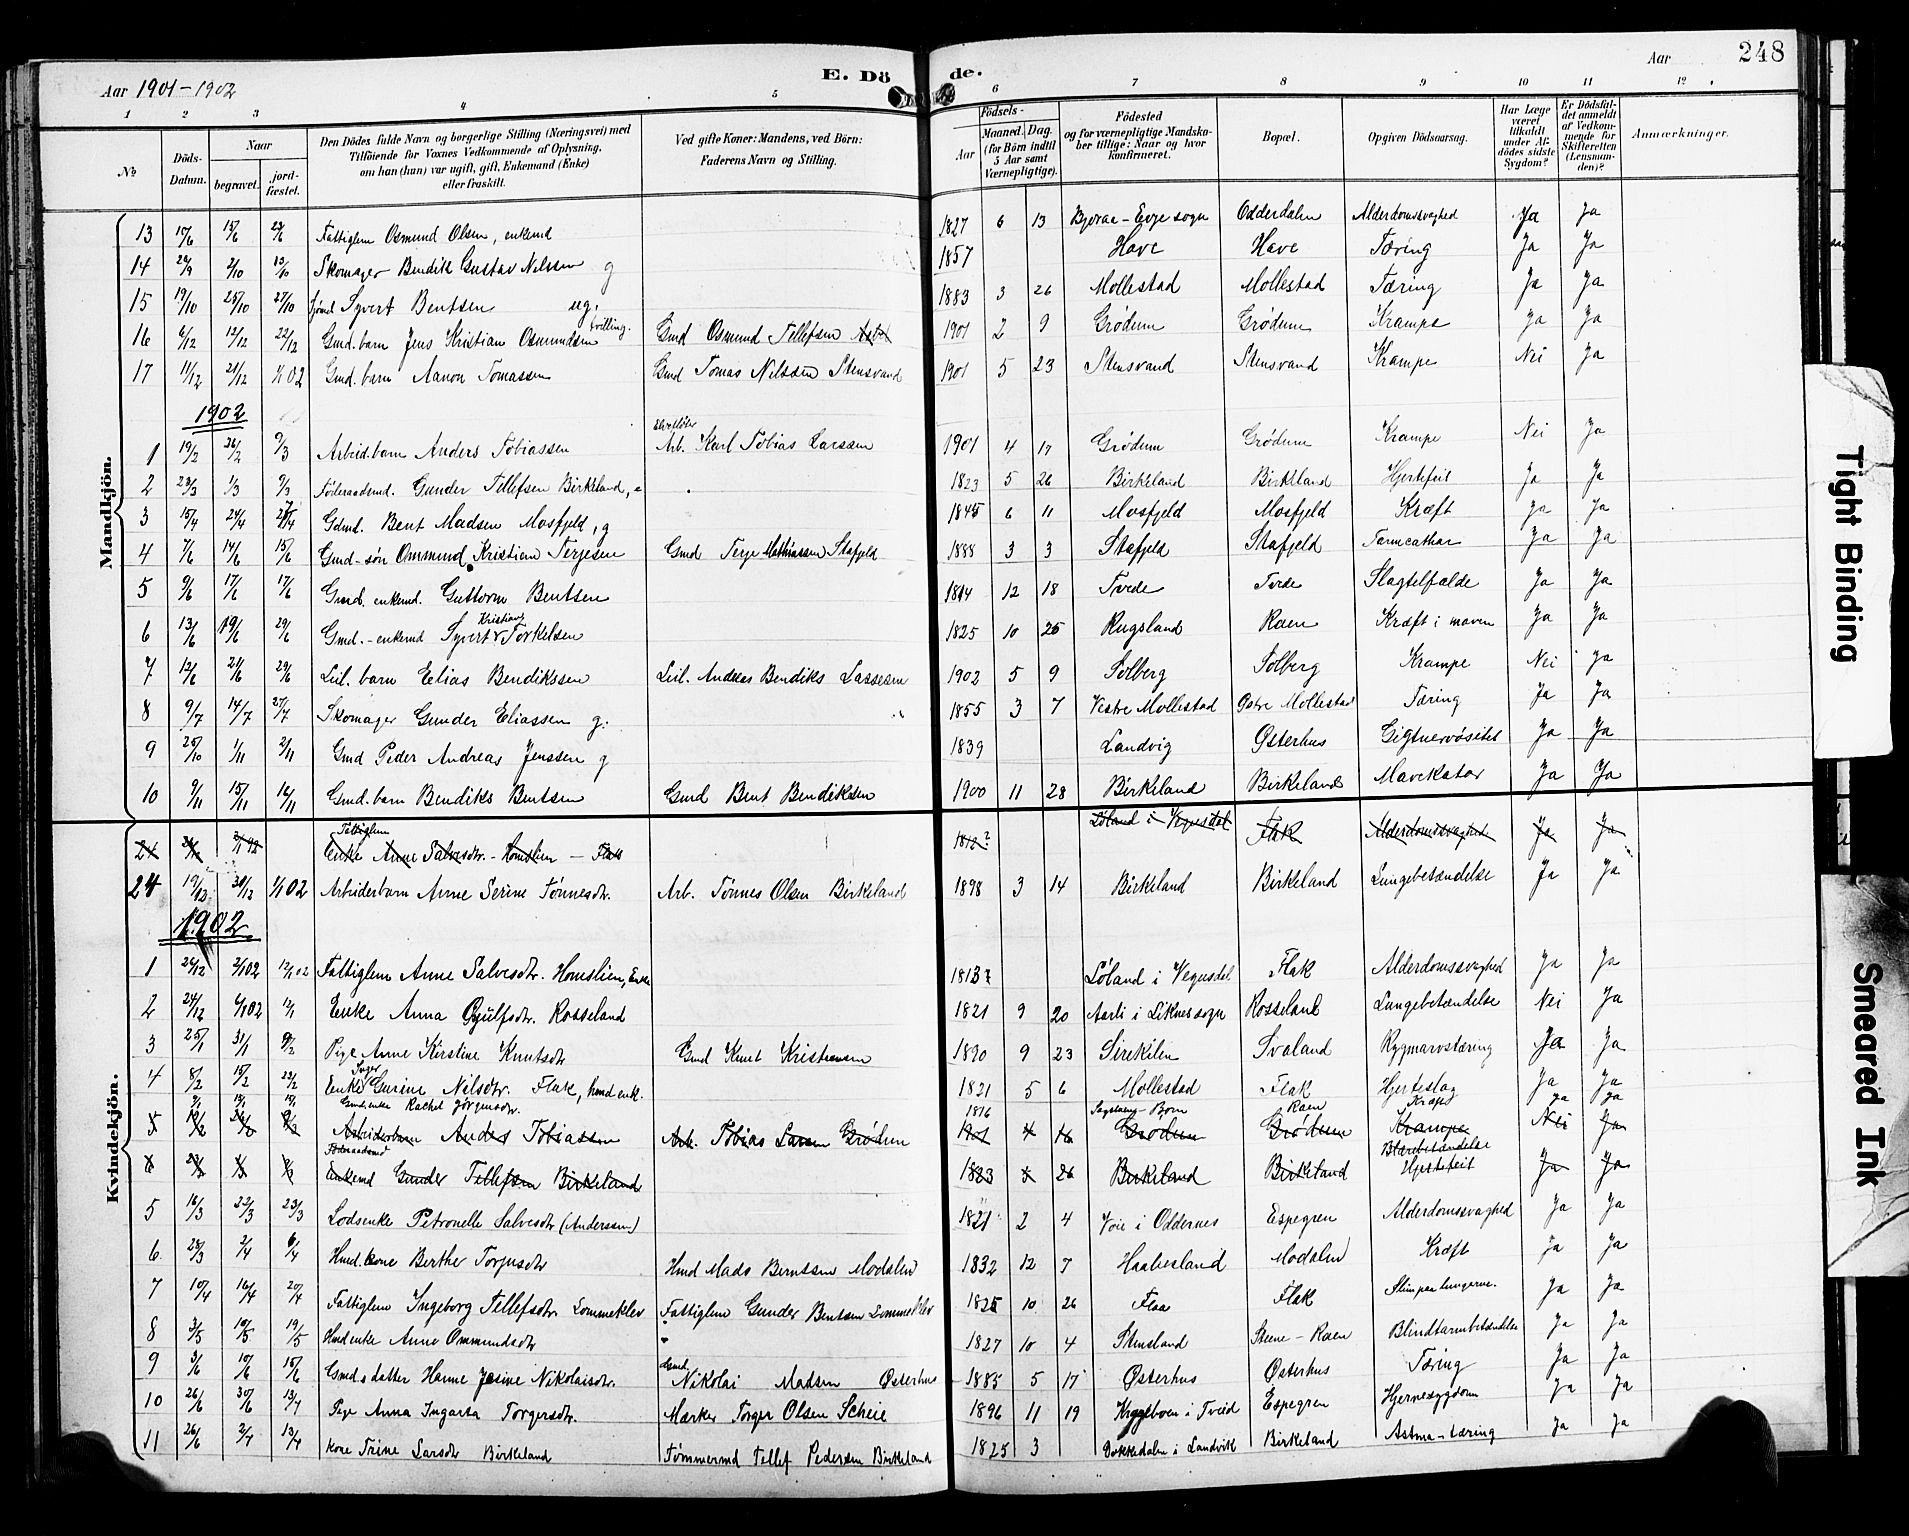 Aar 1901-1902
E. Döde.
Aar 248
1 2 3 4 5 6 7 8 9 10 11 12
No
Döds-Datum.
Naar
begravet.
jordfæstet.
Den Dödes fulde Navn og borgerlige Stilling (Næringsvei) med Tilföiende for Voxnes Vedkommende af Oplysning, om han (hun) var ugift, gift, Enkemand (Enke) eller fraskilt.
Ved gifte Koner: Mandens, ved Börn: Faderens Navn og Stilling.
Födsels-
Aar
Maaned. Dag.
(for Börn indtil 5 Aar samt Værnepligtige).
Födested og for værnepligtige Mandskaber tillige: Naar og hvor konfirmeret.
Bopæl.
Opgiven Dödsaarsag.
Har Læge været tilkaldt under Afdödes sidste Sygdom?
Er Dödsfaldet anmeldt af Vedkommende for Skifteretten (Lensmanden)?
Anmærkninger.
Mandkjön.
13 Fattiglem Osmund Olsen, enkemd 1827 6 13 Odderdalen Alderdomssvaghed Ja Ja
14 2/10 Skomager Bendik Gustav Nilssen g 1857 Have Have Tæring Ja Ja
15 19/10 25/10 27/10 Syvert Bentsen ug. 1883 3 26 Mollestad Mollestad Tæring Ja Ja
16 6/12 12/12 22/12 Gmd. barn Jens Kristian Osmundsen tvilling. Gmd Osmund Tellefsen 1901 2 9 Grödum Grödum Krampe Ja Ja
17 11/12 21/12 1/1 02 Gmd. barn Aanon Tomassen Gmd Tomas Nilssen Stensvand 1901 5 23 Stensvand Stensvand Krampe Nei Ja
1902
1 19/2 26/2 9/3 Arbeid.barn Anders Tobiassen Arb. Karl Tobias Larssen 1901 4 17 Grödum Grödum Krampe Nei Ja
2 1/3 9/3 Föderaadsmd. Gunder Tellefsen Birkeland, e 1823 5 26 Birkeland Birkeland Hjertefeil Ja Ja
3 15/4 24/4 27/4 Gdmd. Bent Madsen Mosfjeld, g 1845 6 11 Mosfjeld Mosfjeld Kræft Ja Ja
4 7/6 14/6 15/6 Gmd-sön Ommund Kristian Terjesen Gmd Terje Mathiassen Stafjeld 1888 3 3 Stafjeld Stafjeld Tarmcathar Ja Ja
5 9/6 17/6 17/6 Gmd. enkemd. Guttorm Bentsen 1814 12 18 Tvede Tvede Slagtelfælde Ja Ja
6 13/6 19/6 29/6 Gmd.-enkemd Syvert Kristian Torkelsen 1825 10 25 Rugsland Raen Kræft i maven Ja Ja
7 12/6 21/6 29/6 Leil. barn Elias Bendikssen Leil. Andreas Bendiks Lassesen 1902 5 9 Solberg Solberg Krampe Nei Ja
8 9/7 14/7 27/7 Skomager Gunder Eliassen g. 1855 3 7 Vestre Mollestad Östre Mollestad Tæring Ja Ja
9 25/10 1/11 2/11 Gmd Peder Andreas Jenssen g 1839 Landvig Østerhus Gigtnervösitet Ja Ja
10 9/11 15/11 16/11 Gmd. barn Bendiks Bentsen Gmd Bent Bendiksen 1900 11 28 Birkeland Birkeland Mavekatar Ja Ja
Kvindekjön.
24 Fattiglem Enke Anne Salvesdtr. Homslien - Flak 1812? Löland i Vegusdal Flak Alderdomssvaghed Ja Ja
24 19/12 30/12 1/1 02 Arbeiderbarn Anne Serine Tönnesdtr. Arb. Tönnes Olsen Birkeland 1898 3 14 Birkeland Birkeland Lungebetændelse Ja Ja
1902
1 24/12 2/1 02 12/1 02 Fattiglem Anne Salvesdtr. Homslien, Enke 1813? Löland i Vegusdal Flak Alderdomssvaghed Ja Ja
2 24/12 6/1 02 12/1 Enke Anna Rosseland 1821 9 20 Aarli i Liknes sogn Rosseland Lungebetændelse Nei Ja
3 25/1 31/1 9/2 Pige Anne Kirstine Knutsdtr Gmd Knut Kristensen 1890 9 23 Sirekilen Svaland Rygmarvstæring Ja Ja
4 8/2 15/2 23/2 Enke Gurine Nilsdtr. Flak, hmd enk. 1821 5 6 Mollestad Flak Hjerteslag Ja Ja
Gmd.enke Rachel Jörgensdtr. 1816 Raen Kræft Ja Ja
5 19/2 26/2 9/3 Arbeiderbarn Andes Tobiassen Arb. Tobias Larsen Grödum 1901 4 16 Grödum Grödum Krampe Nei Ja
Blærebetændelse
6 1/3 9/3 Föderaadsmd Enkemd Gunder Tellefsen Birkeland 1823 5 26 Birkeland Birkeland Hjertefeil Ja Ja
5 16/3 22/3 23/3 Lodsenke Petronelle Salvesdtr (Anderssen) 1821 2 4 Voie i Oddernes Espegren Alderdomssvaghed Ja Ja
6 28/3 2/4 6/4 Hmd. kone Berthe Torjusdtr Hmd Mads Berntssen Modalen 1832 12 7 Haabesland Modalen Kræft Ja Ja
7 10/4 16/4 20/4 Fattiglem Ingeborg Tellefsdtr Lommeklev Fattiglem Gunder Bentsen Lommeklev 1825 10 26 Flaa Flak Slim paa lungerne. Ja Ja
8 3/5 10/5 19/5 Hmd enke Anne Ommundsdtr 1827 10 4 Stensland Steene-Raen Blindtarmbetændelse Ja Ja
9 3/6 10/6 15/6 Gmds datter Hanne Josine Nikolaisdtr. Gmd Nikolai Madsen Østerhus 1885 5 17 Østerhus Østerhus Tæring Ja Ja
10 26/6 30/6 13/7 Pige Anna Ingarta Torgersdtr. Mærker Torger Olsen Scheie 1896 11 19 Espegren Hjernesygdom Ja Ja
11 26/6 2/7 13/7 Kone Trine Larsdtr Birkeland Tömmermd Tellef Pedersen Birkeland 1825 3 Dokkedalen i Landvik Birkeland Astma-tæring Ja Ja
Tight Binding
Smeared Ink